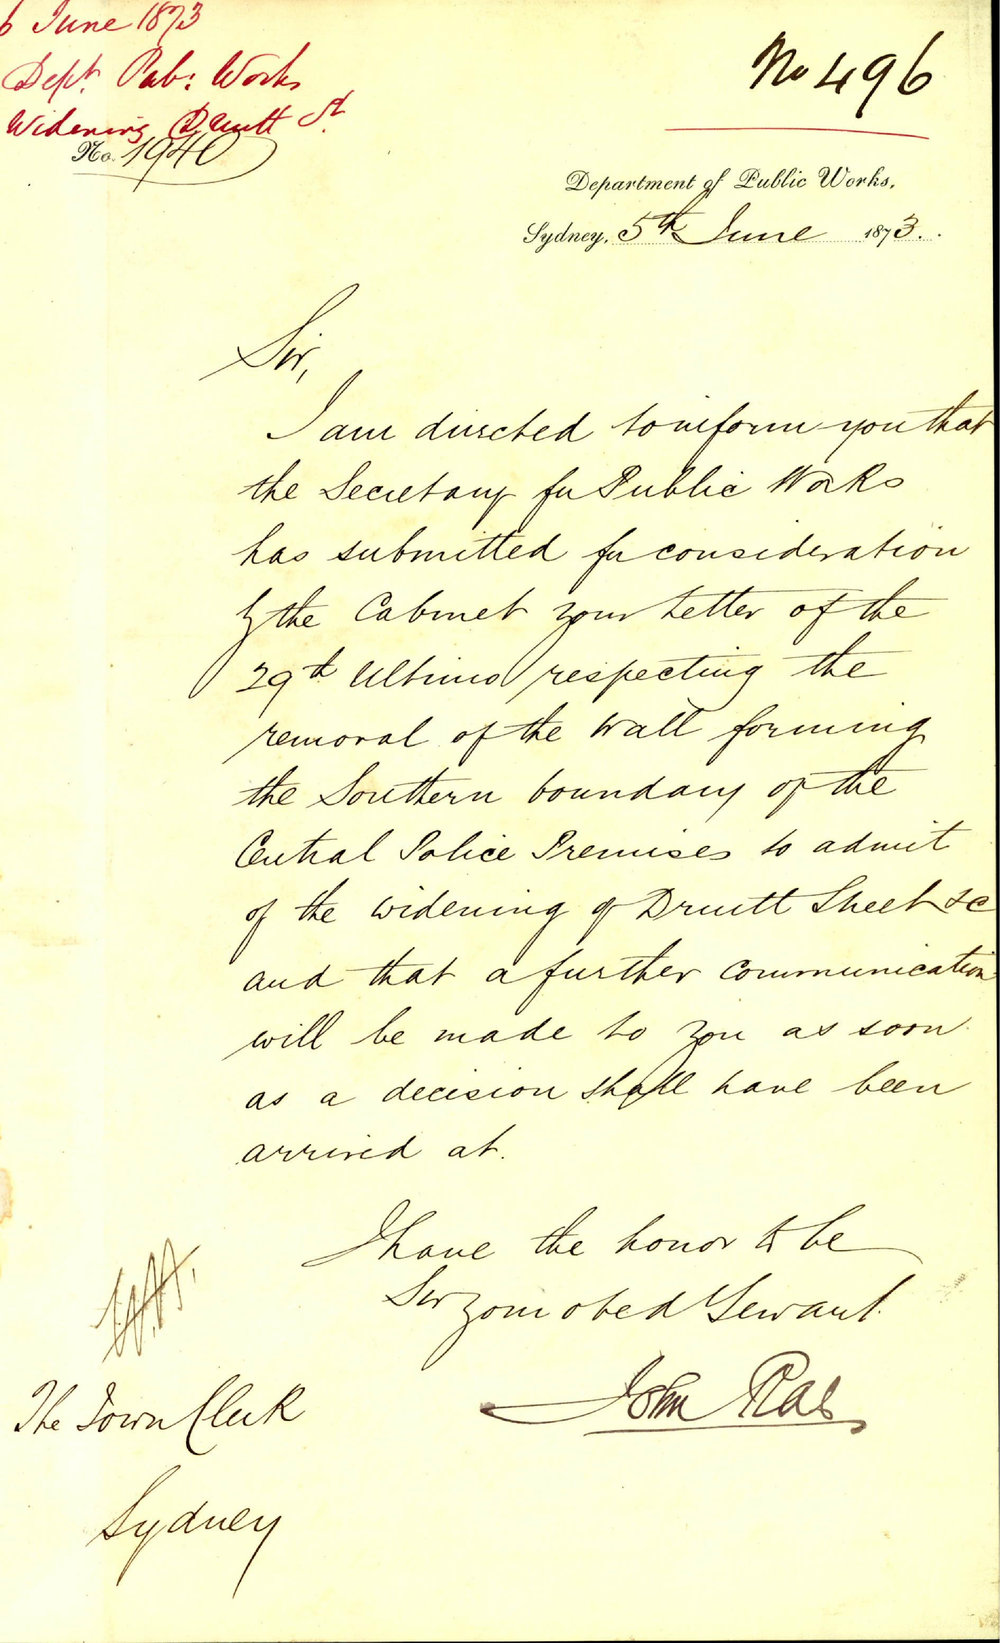 6 June 1873
Dept. Pub: Works
Widening Druitt St.
No. 1940
No 496
Department of Public Works,
Sydney, 5th June 1873.
Sir,
I am directed to inform you that
the Secretary for Public Works
has submitted for consideration
by the Cabinet your letter of the
29th Ultimo respecting the
removal of the Wall forming
the Southern boundary of the
Central Police Premises to admit
of the widening of Druitt Street &c
and that a further communication
will be made to you as soon
as a decision shall have been
arrived at.
I have the honor to be
Sir your obed Servant.
John Rae
The Town Clerk
Sydney